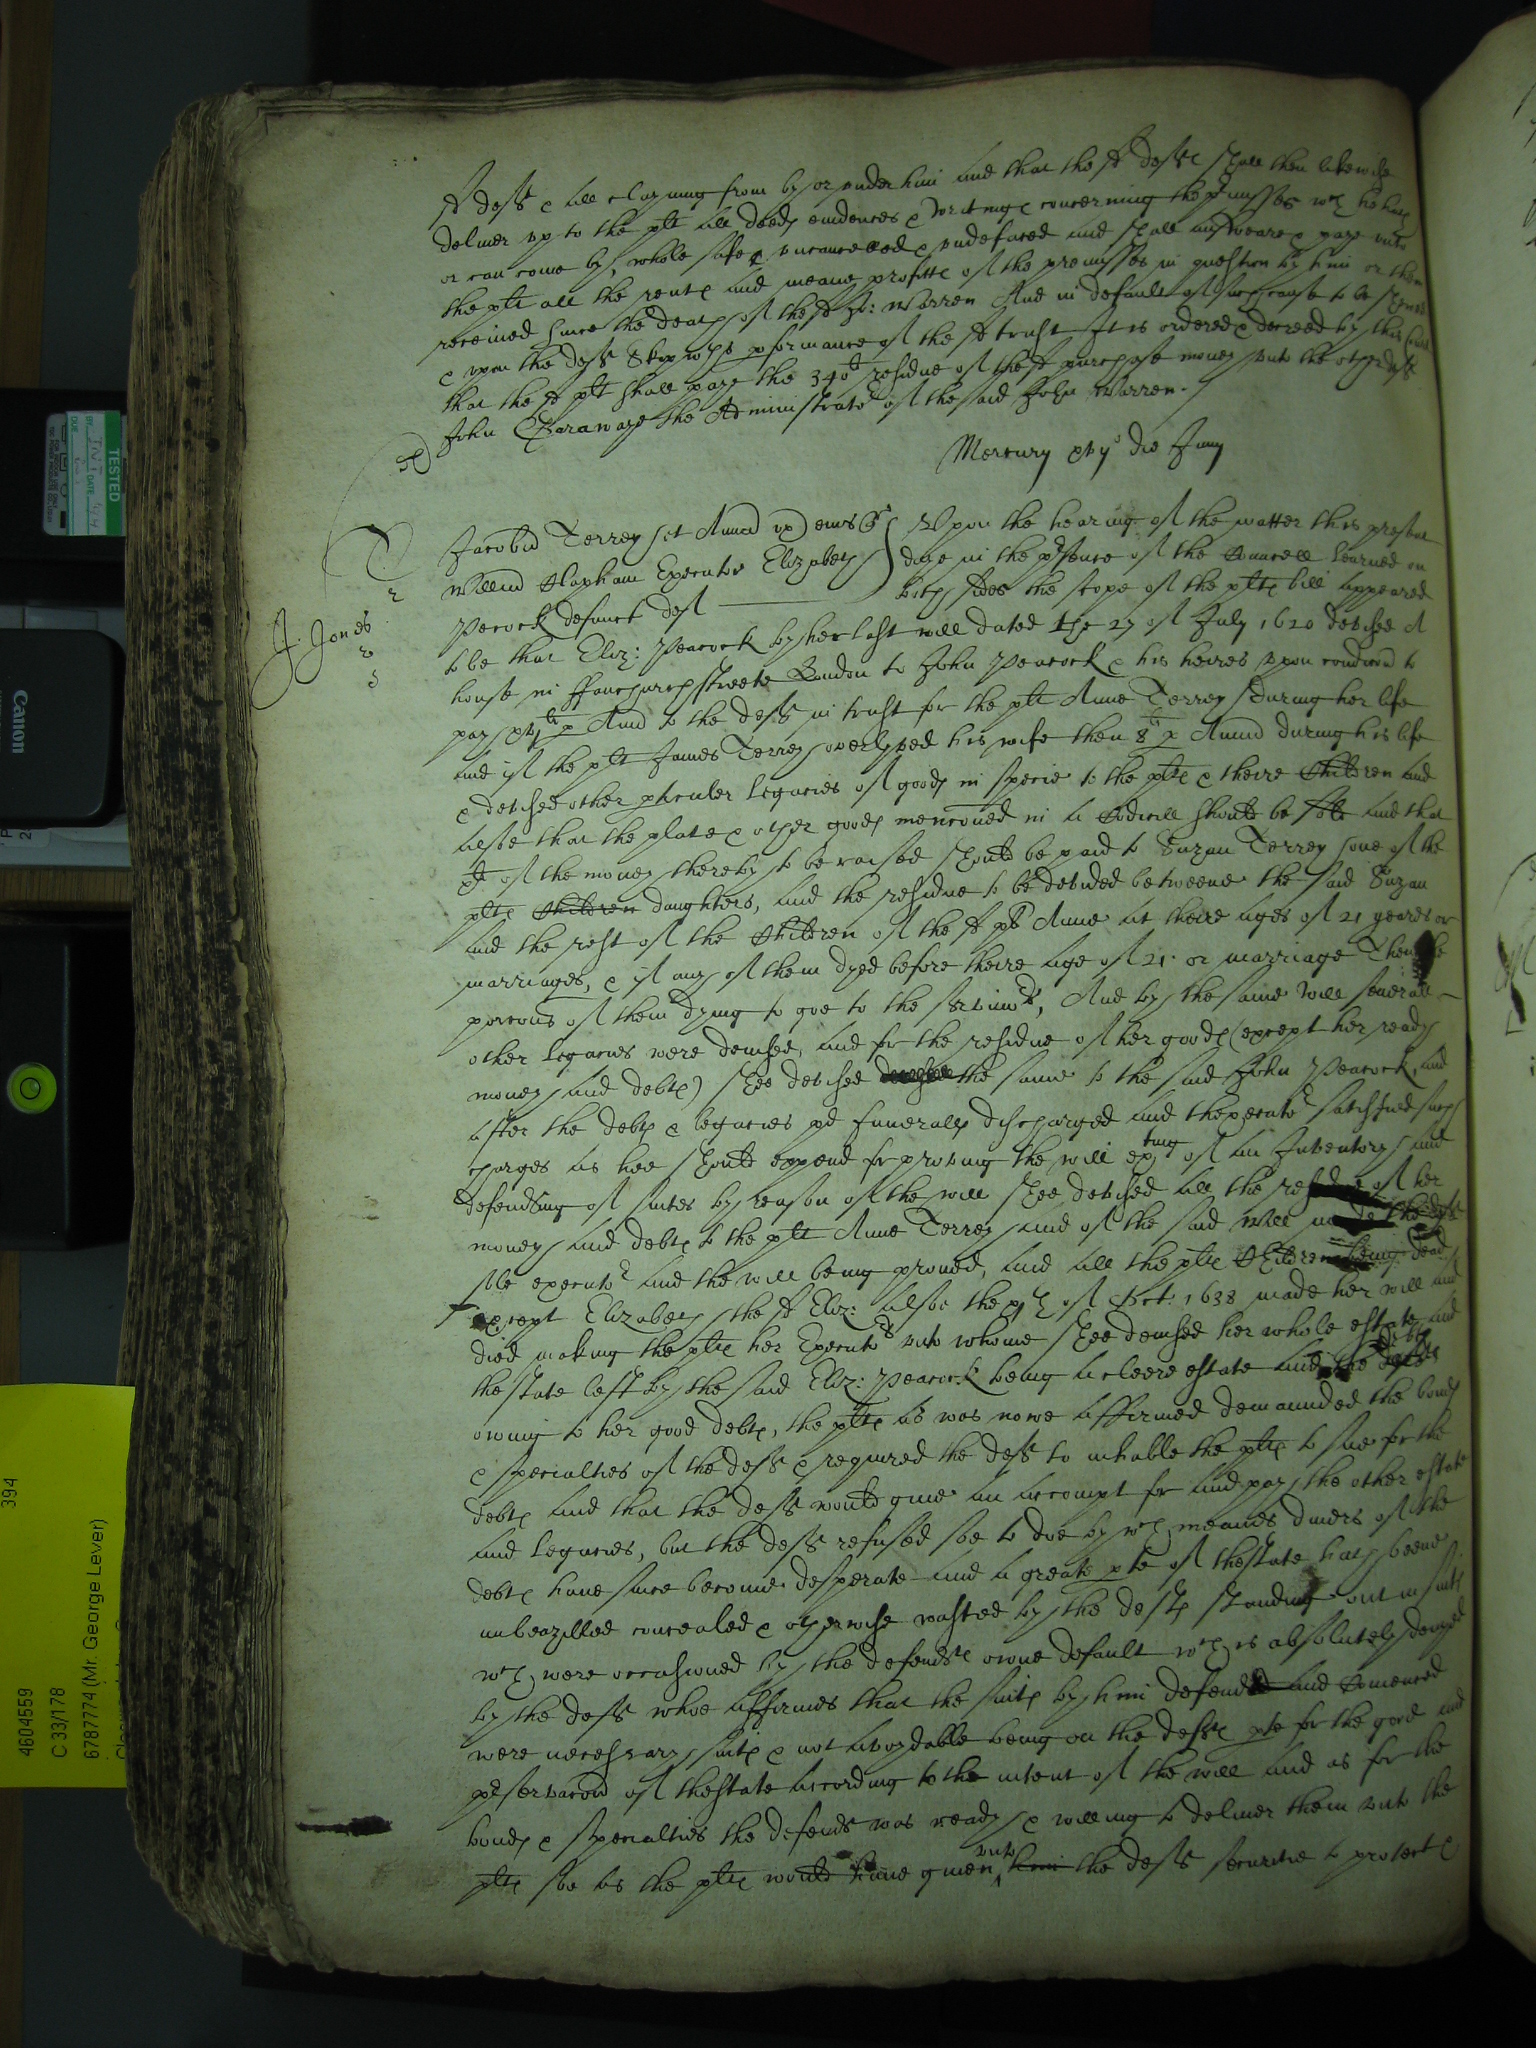 sd deft & all clayming from by or under him and that the sd deft shall then likewise
deliver up to the plt all deeds evidences & writings concerning the pmisses wch he hath
or can come by, whole safe & uncancelled & undefaced and shall answeare & paye unto
the plt all the rents and meane profitts of the premisses in question by him or them
received since the death of the sd Jo: Warren And in default of such cause to be shewed
& upon the deft performance of the sd trust It is ordered & decreed by this Court
that the sd plt shall paye the 340li residue of the sd purchase money unto the other deft
John the Administrator of the said John Warren.
Mercury xvjo die Juny
J. Jones
Jacobus Terrey et Anna ux eius Qr
Willm Clapham Executor Elizabeth
Pecock defunct deft
Upon the hearing of the matter this present
daye in the psence of the Councell learned on
both sides the scope of the plts bill appeared
to be that Eliz: Peacock by her last will dated the 27 of July 1620 devised A
house in ffanchurch streete London to John Peacock & his heires upon condicion to
pay xvjli p Annu to the deft in trust for the plt Anne Terrey during her life
and if the plt James Terrey overlyved his wife then 8li p Annu during his life
& devised other pticuler legacies of goods in specie to the plts & theire Children and
alsoe that the plate & other goods mencioned in a Codicill should be sold and that
of the money thereby to be raised should be paid to Suzan Terrey one of the
plts Children daughters, and the residue to be devided betweene the said Suzan
and the rest of the Children of the sd plt Anne at theire ages of 21 yeares or
marriages, & if any of them dyed before theire age of 21 or marriage Then the
porcons of them dying to goe to the survivors, And by the same Will severall
other legacies were devised, and for the residue of her goods (except her ready
money and debts) shee devised the same to the said John Peacock, and
after the debts & legacies pd funeralls discharged and thexecutor satisfied such
charges as hee should expend for proving the will of an Inventory and
defending of suites by reason of the will shee devised all the residue of her
money and debts to the plt Anne Terrey and of the said Will made the deft
sole executor and the will being proved, and all the plts Children being dead
except Elizabeth the sd Eliz: alsoe the of Oct: 1638 made her will and
died making the plts her Executors unto whome shee devised her whole estate and
thestate left by the said Eliz: Peacock being a cleere estate and the debts
owing to her good debts, the plts as was nowe affirmed demaunded the bonds
& specialties of the deft & required the deft to inhable the plts to sue for the
debts and that the deft would give an accompt for and pay the other estate
and legacies, but the deft refused soe to doe by wch meanes divers of the
debts have since become desperate and a greate pte of thestate hath beene
imbeazilled concealed & otherwise wasted by the deft standing out in suits
wch were occasioned by the defendts owne default wch is absolutely denyed
by the deft whoe affirmes that the suits by him defended and Comenced
were necessary suits & not avoydable being on the defts pte for the good and
pservacon of thestate according to the intent of the will and as for the
bonds & specialties the defendt was ready & willing to deliver them unto the
plts soe as the plts would have given unto him the deft securitie to protect &
TESTED
BY
DATE
DUE
Canon
394
4604559
C 33/178
6787774 (Mr. George Lever)